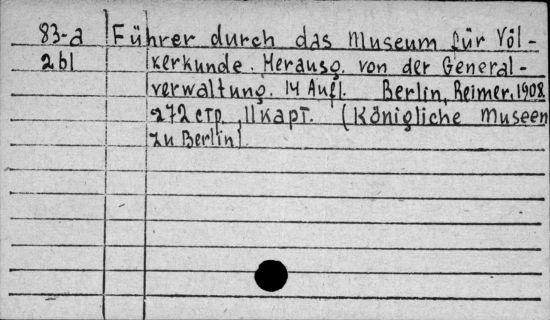 83-a Führer durch das Museum für Völ-
2bl kerkunde. Herausg. von der General-
verwaltung. 14 Aufl. Berlin, Reimer, 1908.
272 стр. 11 карт. (Königliche Museen
zu Berlin)